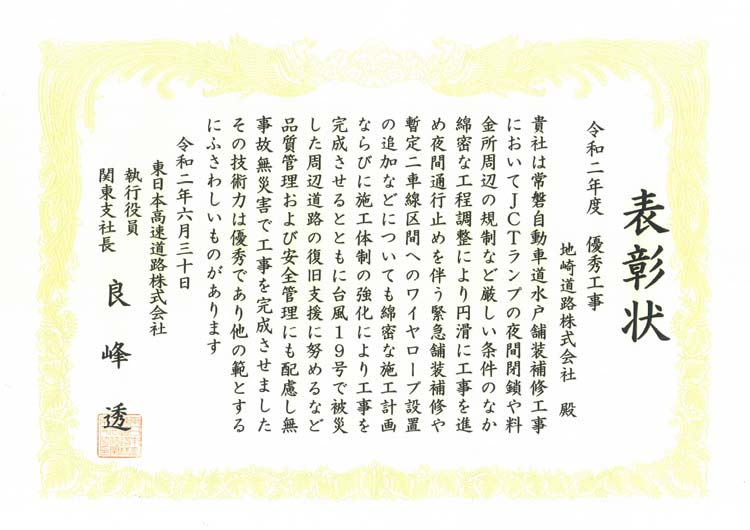 表彰状
令和二年度　優秀工事
地崎道路株式会社　殿
貴社は常磐自動車道水戸舗装補修工事
においてJCTランプの夜間閉鎖や料
金所周辺の規制など厳しい条件のなか
綿密な工程調整により円滑に工事を進
め夜間通行止めを伴う緊急舗装補修や
暫定二車線区間へのワイヤロープ設置
の追加などについても綿密な施工計画
ならびに施工体制の強化により工事を
完成させるとともに台風19号で被災
した周辺道路の復旧支援に努めるなど
品質管理および安全管理にも配慮し無
事故無災害で工事を完成させました
その技術力は優秀であり他の範とする
にふさわしいものがあります
令和二年六月三十日
東日本高速道路株式会社
執行役員
関東支社長　良峰透